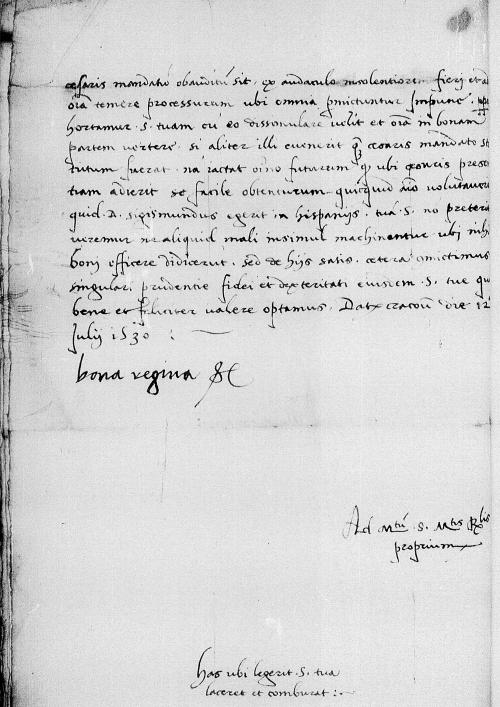 cesaris mandatū obauditū sit, ex audaculo insolentiorem fieri et ad
oīa temere processurum ubi omnia pmictuntur Impune.
hortamur .S. tuam cū eo dissimulare velit et oīa in bonam
partem vertere, si aliter illi evenerit q̄ cesaris mandato
tutum fuerat. nā iactat oīno futurum ubi cesaris
tiam adierit se facile obtenturum quicquid aīo
quid D. Sigismundus egerit in hispaniis, tuā .S. nō
veremur ne aliquid mali insimul machinentur ubi
boni officere didicerūt. Sed de hiis satis. cetera cmictimus
singulari prudentie fidei et dexteritati eiusdem .S. tue
bene et feliciter valere optamus. Datæ cracoū die 12
Julii 1530 :
bona regina &c
Ad Mtū S. Mtis Rlis
proprium
has ubi legerit .S. tua
laceret et comburat :~